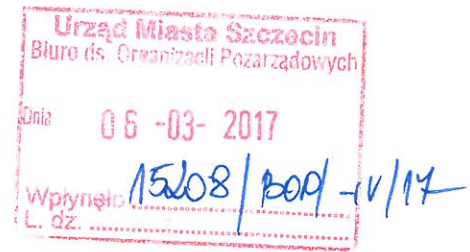 Urząd Miasta Szczecin
Biuro ds. Organizacji Pozarządowych
Dnia 06 -03- 2017
Wpłynęło 15208/BOP/-IV/17
L. dz.